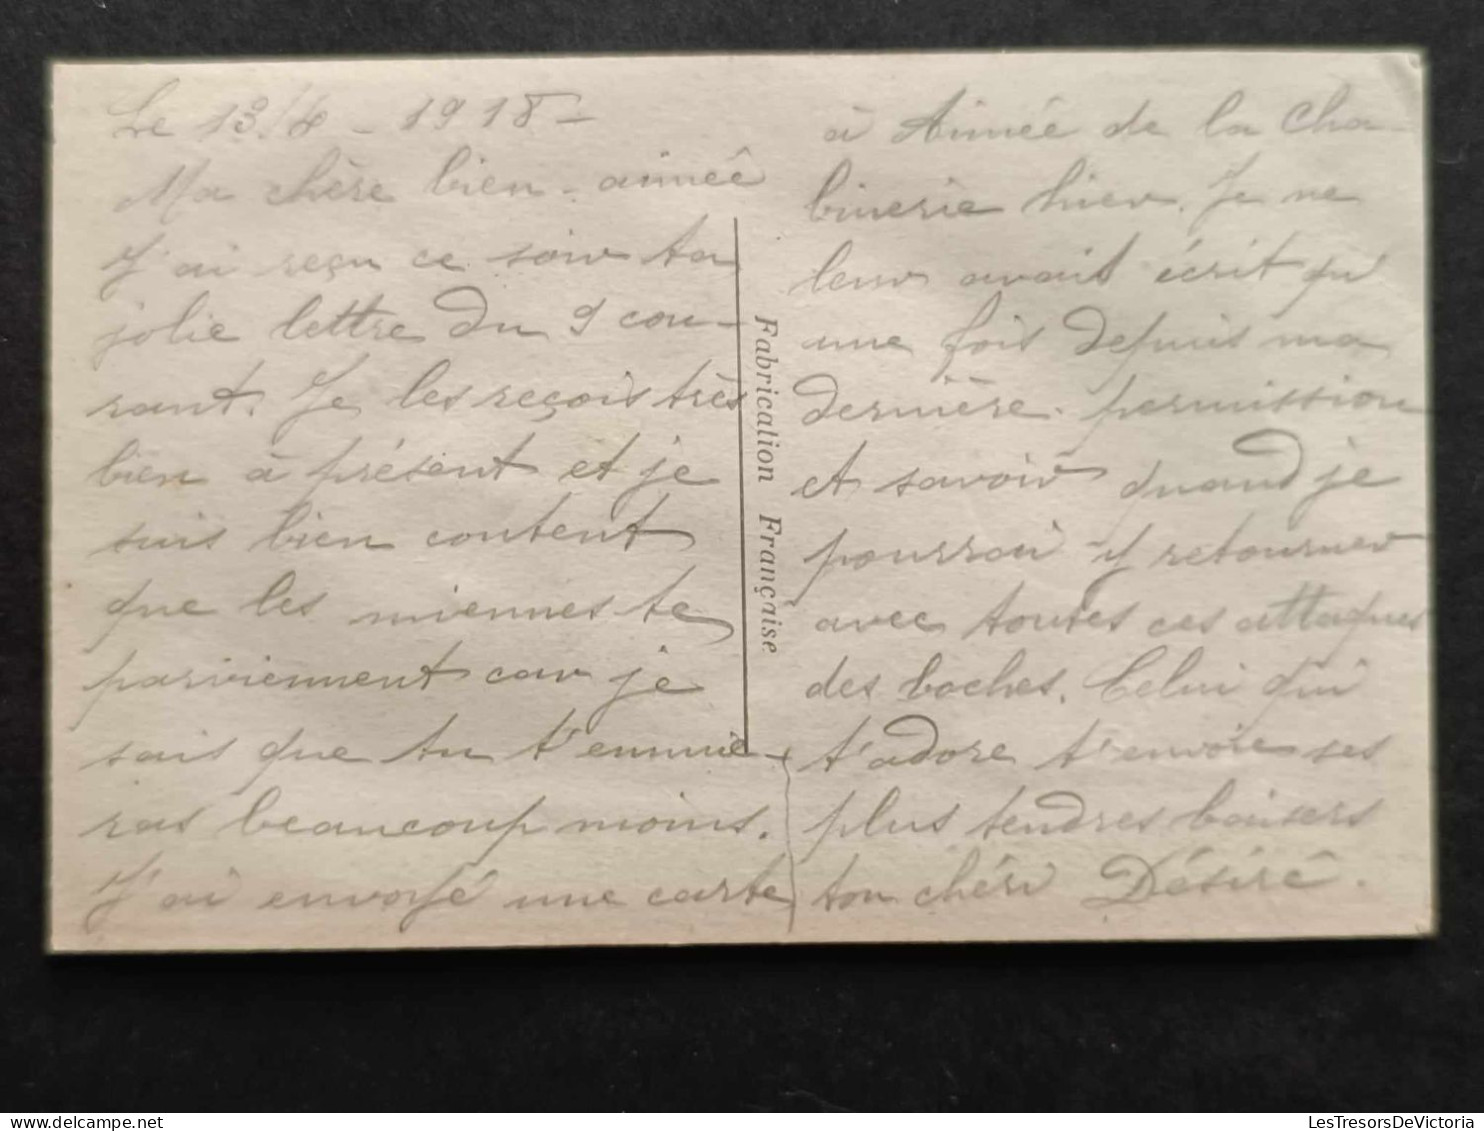 Le 13/4 - 1918 -
Ma chère bien-aimée
J'ai reçu ce soir ta
jolie lettre du 9 cou-
rant. Je les reçois très
bien à présent et je
suis bien content
que les miennes te
parviennent car je
sais que tu t'ennuie-
ras beaucoup moins.
J'ai envoyé une carte
à Aimée de la Cha-
binerie hier. Je ne
leur avait écrit qu'
une fois depuis ma
dernière permission
et savoir quand je
pourrai y retourner
avec toutes ces attaques
des boches. Celui qui
t'adore t'envoie ses
plus tendres baisers
ton chéri Désiré.
Fabrication Française
LesTresorsDeVictoria